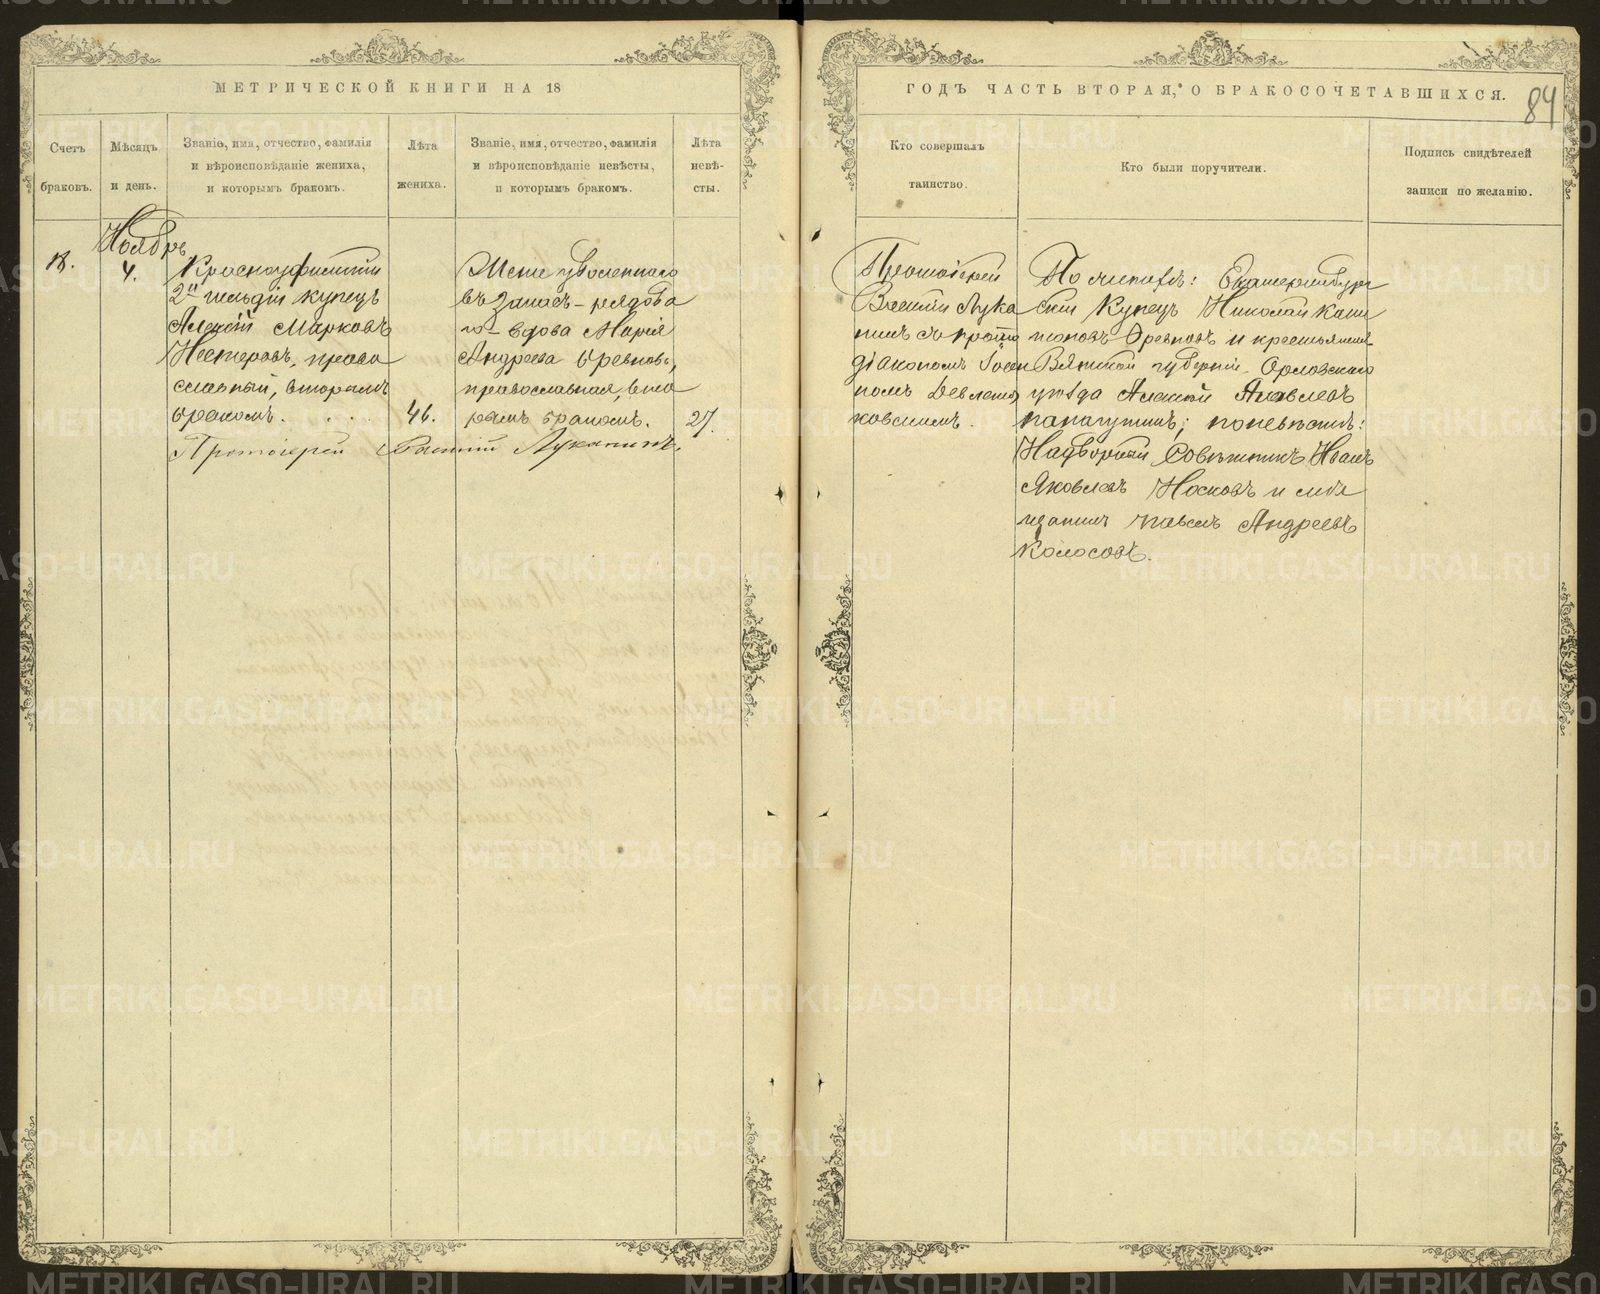 МЕТРИЧЕСКОЙ КНИГИ НА 18
Счетъ браковъ.
Мѣсяцъ и день.
Званіе, имя, отчество, фамилія
и вѣроисповѣданіе жениха,
и которымъ бракомъ.
Лѣта жениха.
Званіе, имя, отчество, фамилія
и вѣроисповѣданіе невѣсты,
и которымъ бракомъ.
Лѣта невѣ-
сты.
Ноябрь
4.
Красноуфимскій
2й гильдіи купецъ
Алексій Марковъ
Нестеровъ, право
славный, вторымъ
бракомъ.
46.
уволеннаго
въ запасъ рядова
го вдова Марія
Андреева
православная, вто
рымъ бракомъ.
27.
Протоіерей Василій Луканинъ.
ГОДЪ ЧАСТЬ ВТОРАЯ, О БРАКОСОЧЕТАВШИХСЯ.
84
Кто совершалъ
таинство.
Кто были поручители.
Подпись свидѣтелей
записи по желанію.
Протоіерей
Василій Лука
нинъ съ прото
діакономъ
номъ
ковскимъ.
По женихѣ: Екатеринбург
скій купецъ Николай
и крестьянинъ
Вятской губерніи Орловскаго
уѣзда Алексѣй Яковлевъ
по невѣстѣ:
Надворный Совѣтникъ Иванъ
Яковлевъ Носковъ и
Павелъ Андреевъ
Колосовъ.
METRIKI.GASO-URAL.RU